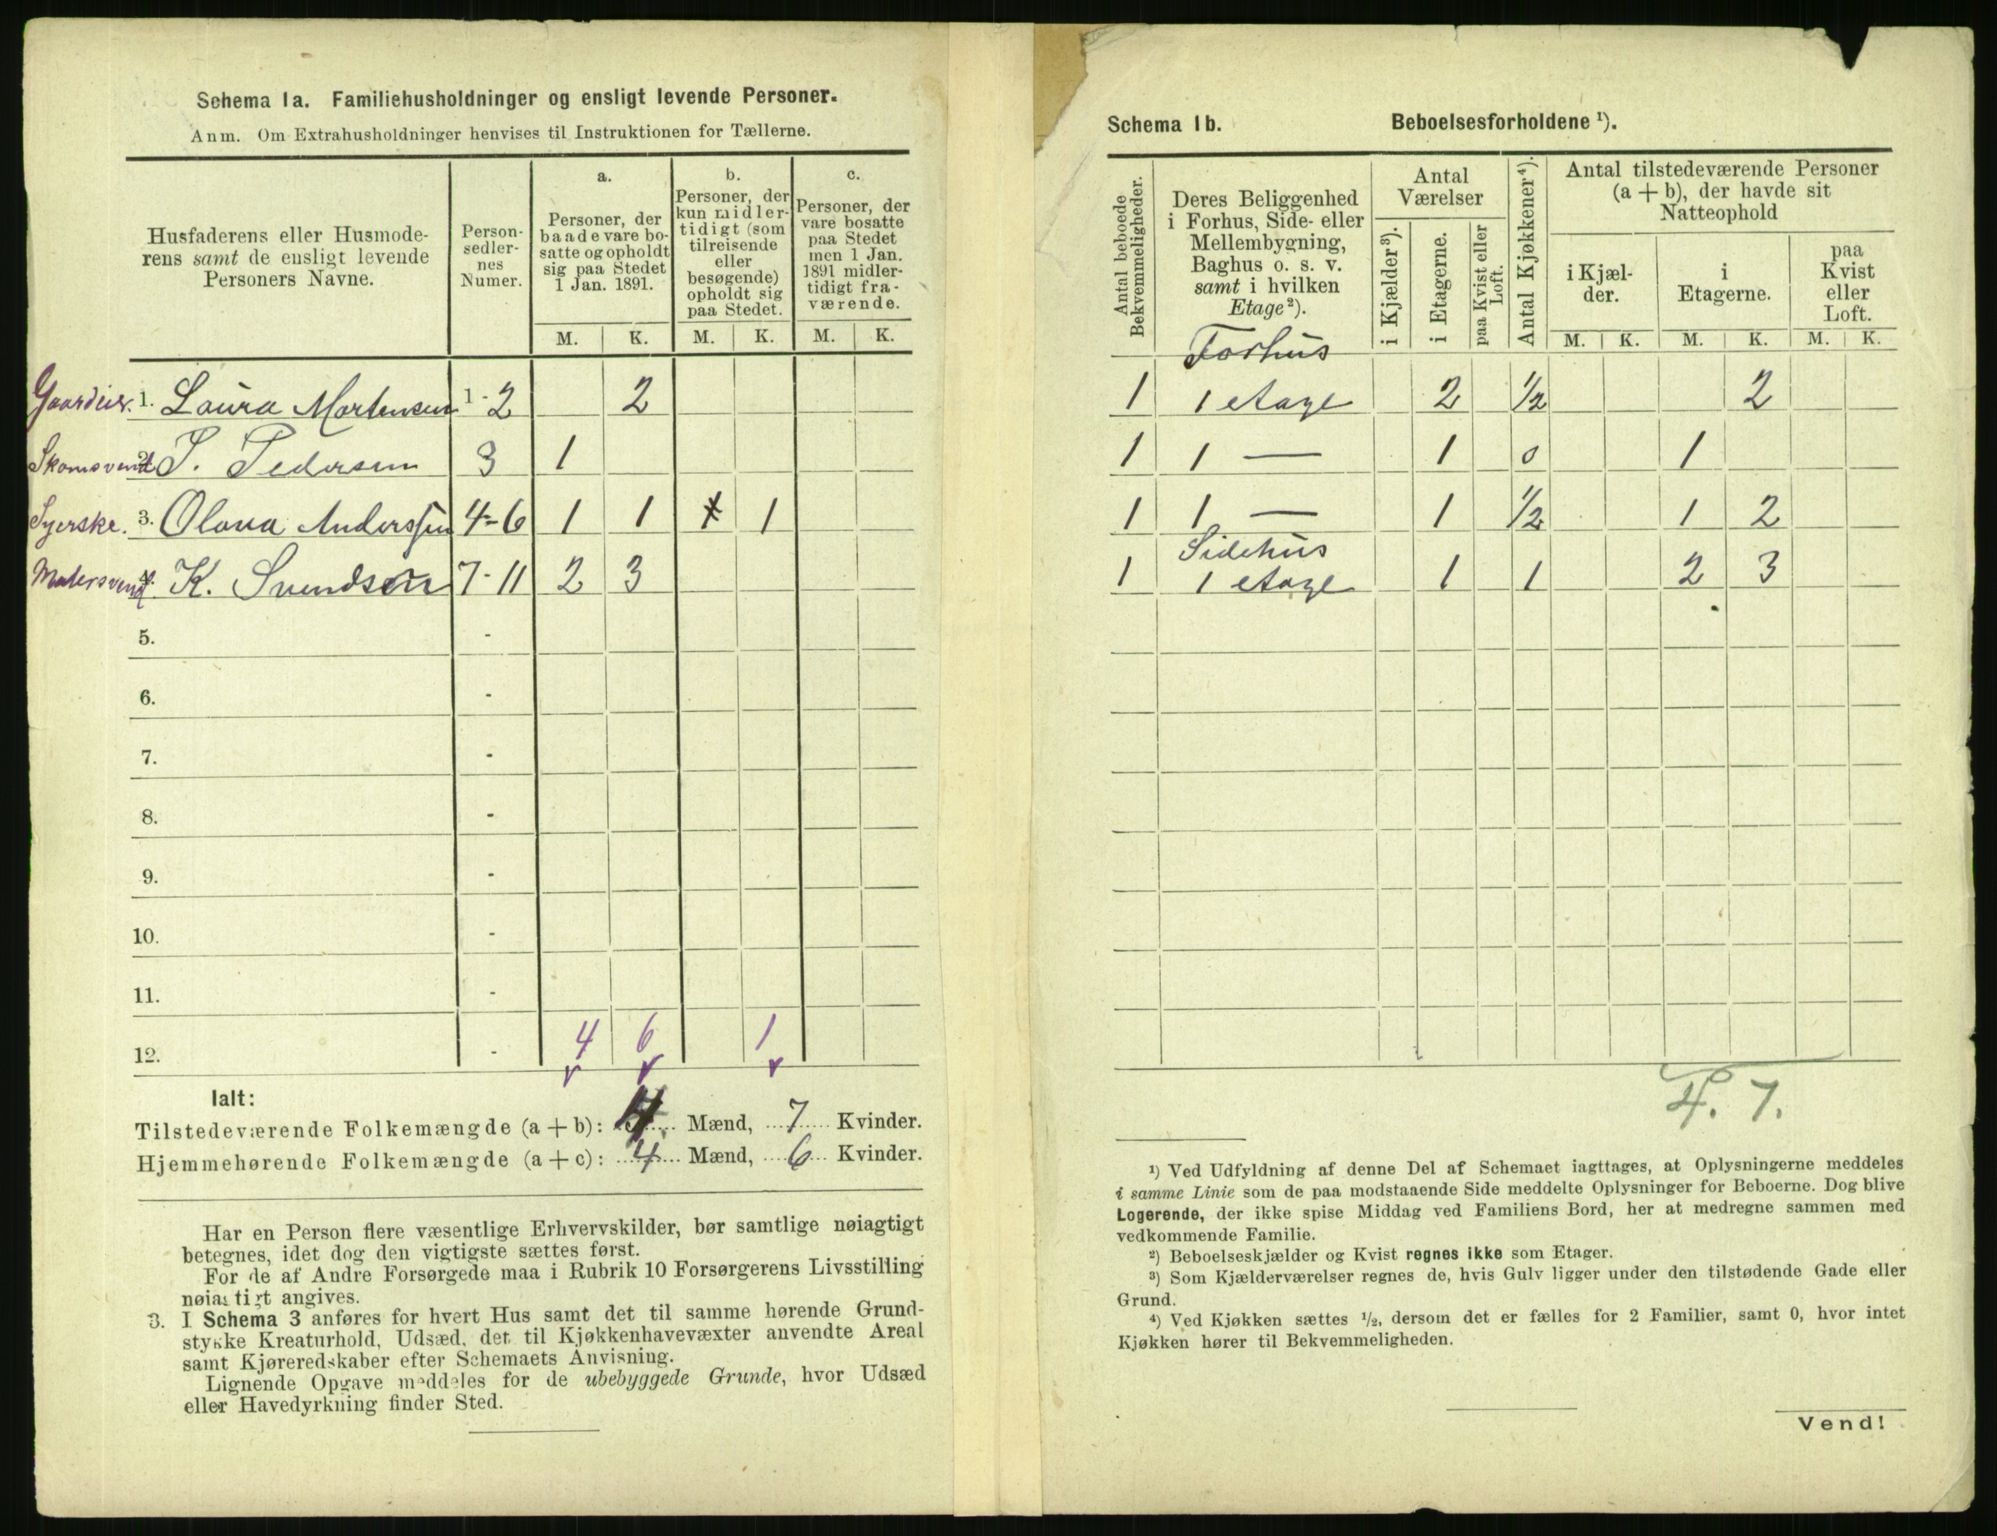 Schema 1a. Familiehusholdninger og ensligt levende Personer.
Anm. Om Extrahusholdninger henvises til Instruktionen for Tællerne.
Husfaderens eller Husmode-
rens samt de ensligt levende
Personers Navne.
Person-
sedler-
nes
Numer.
a.
Personer, der
baade vare bo-
satte og opholdt
sig paa Stedet
1 Jan. 1891.
b.
Personer, der
kun midler-
tidigt (som
tilreisende
eller
besøgende)
opholdt sig
paa Stedet.
c.
Personer, der
vare bosatte
paa Stedet
men 1 Jan.
1891 midler-
tidigt fra-
værende.
M. K. M. K. M. K.
Gaardeier. 1. Laura Mortensen 1-2 2
Skomsvend 2. S. Pedersen 3 1
Syerske. 3. Olava Anderssen 4-6 1 1 1 1
Malersvend 4. K. Svendsen 7-11 2 3
5. -
6. -
7. -
8. -
9. -
10. -
11. -
12. - 4 6 1
Ialt:
Tilstedeværende Folkemængde (a + b): 4 Mænd, 7 Kvinder.
Hjemmehørende Folkemængde (a + c): 4 Mænd, 6 Kvinder.
Har en Person flere væsentlige Erhvervskilder, bør samtlige nøiagtigt
betegnes, idet dog den vigtigste sættes først.
For de af Andre Forsørgede maa i Rubrik 10 Forsørgerens Livsstilling
nøiagtigt angives.
3. I Schema 3 anføres for hvert Hus samt det til samme hørende Grund-
stykke Kreaturhold, Udsæd, det til Kjøkkenhavevæxter anvendte Areal
samt Kjøreredskaber efter Schemaets Anvisning.
Lignende Opgave meddeles for de ubebyggede Grunde, hvor Udsæd
eller Havedyrkning finder Sted.
Schema 1b. Beboelsesforholdene ¹).
Antal beboede
Bekvemmeligheder.
Deres Beliggenhed
i Forhus, Side- eller
Mellembygning,
Baghus o. s. v.
samt i hvilken
Etage²).
Antal
Værelser
i Kjælder³).
i Etagerne.
paa Kvist eller
Loft.
Antal Kjøkkener⁴).
Antal tilstedeværende Personer
(a + b), der havde sit
Natteophold
i Kjæl-
der.
i
Etagerne.
paa
Kvist
eller
Loft.
M. K. M. K. M. K.
Forhus
1 1 etage 2 1/2 2
1 1 — 1 0 1
1 1 — 1 1/2 1 2
Sidehus
1 1 etage 1 1 2 3
4. 7.
¹) Ved Udfyldning af denne Del af Schemaet iagttages, at Oplysningerne meddeles
i samme Linie som de paa modstaaende Side meddelte Oplysninger for Beboerne. Dog blive
Logerende, der ikke spise Middag ved Familiens Bord, her at medregne sammen med
vedkommende Familie.
²) Beboelseskjælder og Kvist regnes ikke som Etager.
³) Som Kjælderværelser regnes de, hvis Gulv ligger under den tilstødende Gade eller
Grund.
⁴) Ved Kjøkken sættes ½, dersom det er fælles for 2 Familier, samt 0, hvor intet
Kjøkken hører til Bekvemmeligheden.
Vend!